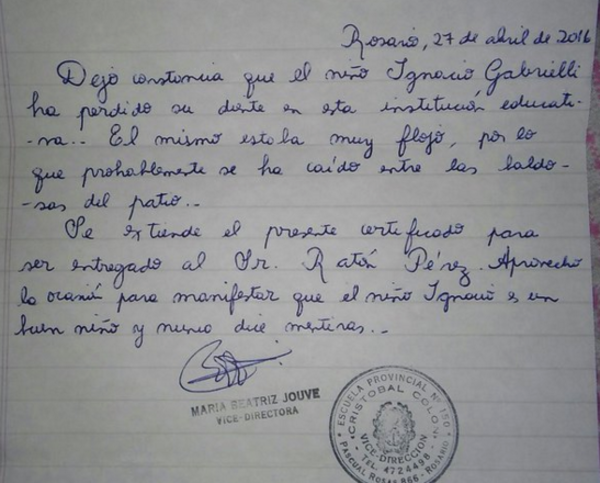 Rosario, 27 de abril de 2016
Dejo constancia que el niño Ignacio Gabrielli
ha perdido su diente en esta institución educati-
-va.. El mismo estaba muy flojo, por lo
que probablemente se ha caído entre las baldo-
-sas del patio..
Se extiende el presente certificado para
ser entregado al Sr. Ratón Pérez. Aprovecho
la ocasión para manifestar que el niño Ignacio es un
buen niño y nunca dice mentiras..
MARIA BEATRIZ JOUVE
VICE-DIRECTORA
ESCUELA PROVINCIAL Nº 150
"CRISTOBAL COLON"
VICE-DIRECCION
TEL. 4724498
PASCUAL ROSAS 856 - ROSARIO